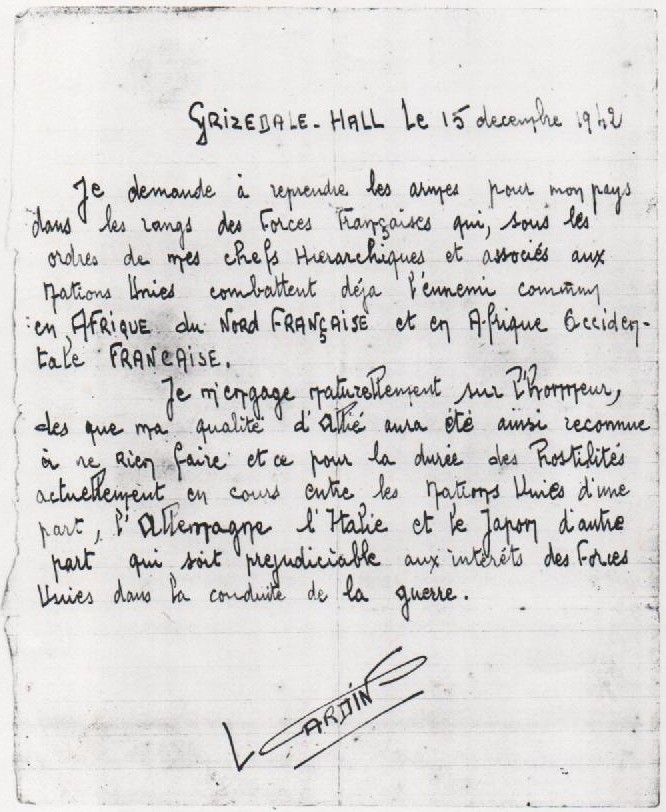 GRIZEDALE-HALL Le 15 decembre 1942
Je demande à reprendre les armes pour mon pays
dans les rangs des Forces Françaises qui, sous les
ordres de mes chefs Hierarchiques et associés aux
Nations Unies combattent déja l'ennemi commun
en AFRIQUE du NORD FRANÇAISE et en Afrique Occiden-
tale FRANCAISE.
Je m'engage naturellement sur l'honneur,
des que ma qualité d'Allié aura été ainsi reconnue
à ne Rien faire et ce pour la durée des Hostilités
actuellement en cours entre les Nations Unies d'une
part, l'Allemagne l'Italie et le Japon d'autre
part qui soit prejudiciable aux intérêts des Forces
Unies dans la conduite de la guerre.
ARDIN